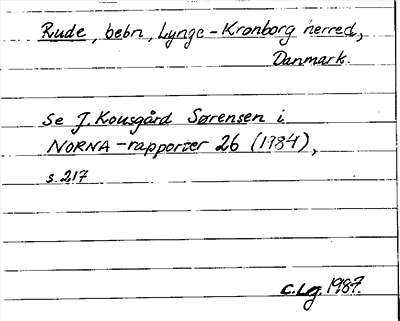 Rude, bebn, Lynge-Kronborg herred,
Danmark.
Se J. Kousgård Sørensen i
NORNA-rapporter 26 (1984),
s. 217
C.Lg. 1987.